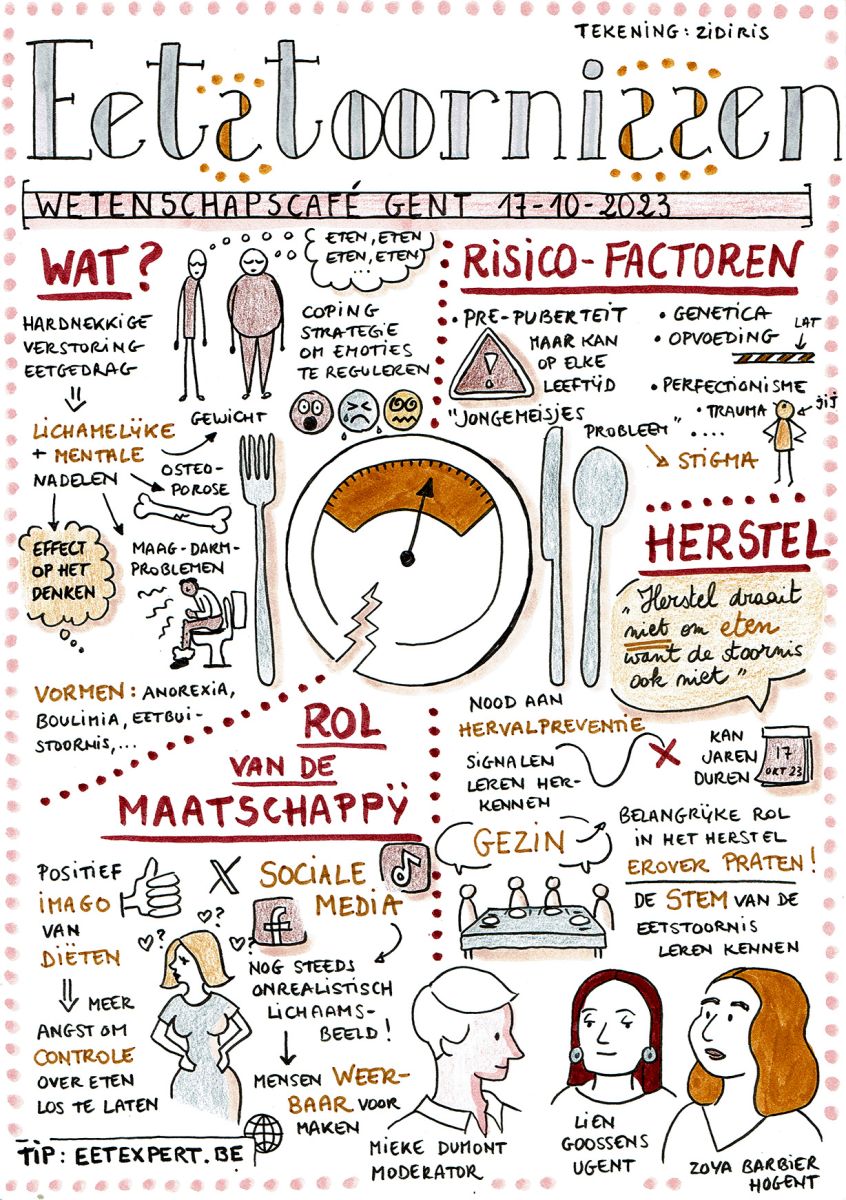 TEKENING: ZIDIRIS
Eetstoornissen
WETENSCHAPSCAFÉ GENT 17-10-2023
WAT?
ETEN, ETEN
ETEN, ETEN
...
HARDNEKKIGE
VERSTORING
EETGEDRAG
COPING
STRATEGIE
OM EMOTIES
TE REGULEREN
LICHAMELIJKE
+ MENTALE
NADELEN
GEWICHT
OSTEO-
POROSE
MAAG-DARM-
PROBLEMEN
EFFECT
OP HET
DENKEN
VORMEN: ANOREXIA,
BOULIMIA, EETBUI-
STOORNIS,...
RISICO-FACTOREN
• PRE-PUBERTEIT
MAAR KAN
OP ELKE
LEEFTIJD
!
"JONGEMEISJES
PROBLEEM" ....
STIGMA
• GENETICA
• OPVOEDING
LAT
• PERFECTIONISME
• TRAUMA
JIJ
HERSTEL
„Herstel draait
niet om eten
want de stoornis
ook niet"
NOOD AAN
HERVALPREVENTIE
SIGNALEN
LEREN HER-
KENNEN
X
KAN
JAREN
DUREN
17
OKT 23
GEZIN
BELANGRIJKE ROL
IN HET HERSTEL
EROVER PRATEN!
DE STEM VAN DE
EETSTOORNIS
LEREN KENNEN
ROL
VAN DE
MAATSCHAPPIJ
POSITIEF
IMAGO
VAN
DIËTEN
?
?
?
MEER
ANGST OM
CONTROLE
OVER ETEN
LOS TE LATEN
X
SOCIALE
MEDIA
f
NOG STEEDS
ONREALISTISCH
LICHAAMS-
BEELD!
MENSEN WEER-
BAAR VOOR
MAKEN
TIP: EETEXPERT.BE
MIEKE DUMONT
MODERATOR
LIEN
GOOSSENS
UGENT
ZOYA BARBIER
HOGENT